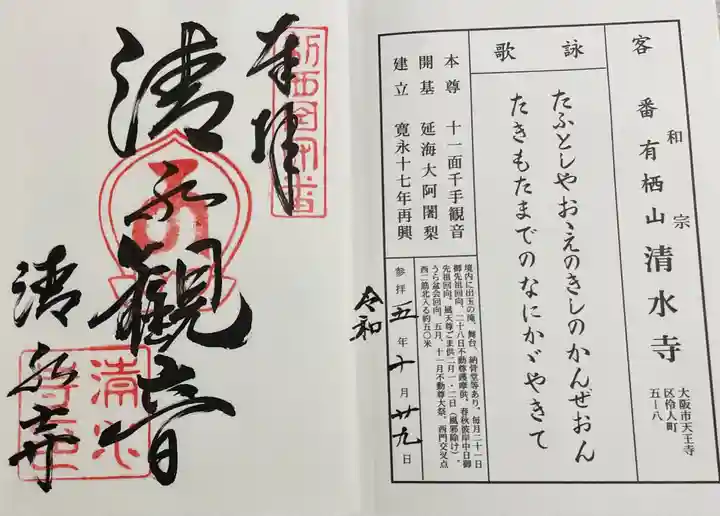 客番 和宗 有栖山 清水寺
大阪市天王寺
区伶人町
五―八
詠歌
たふとしやおゝえのきしのかんぜおん
たきもたまでのなにかゞやきて
本尊 十一面千手観音
開基 延海大阿闍梨
建立 寛永十七年再興
境内に出玉の滝、舞台、納骨堂等あり。毎月二十一日
御先祖回向、二十八日不動尊護摩供。春秋彼岸中日御
先祖回向。風天尊ごま供二月一・二日(風邪除け)。
うら盆会回向、五月、十一月不動尊大祭。西門交叉点
西二筋北入る約五〇米
令和
参拝 五年十月廿九日
奉拝
清水観音
清水寺